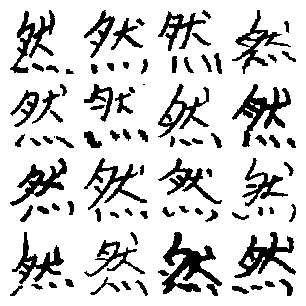 然然然然
然然然然
然然然然
然然然然